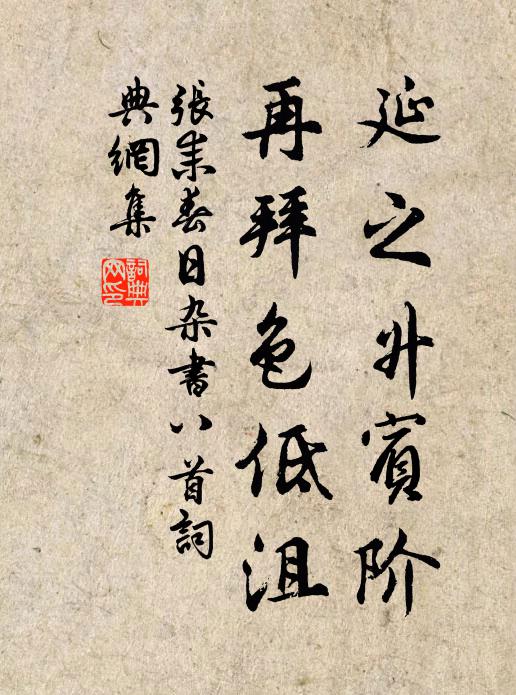 延之升賓阶
再拜色低沮
張耒春日杂書八首詞
典網集
詞典
网印